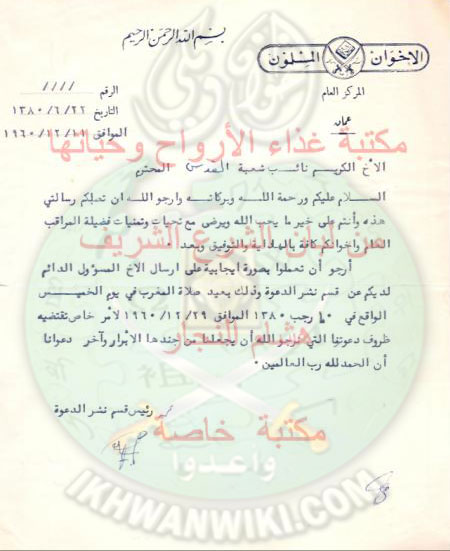 بسم الله الرحمن الرحيم
الاخوان المسلمون
المركز العام
عمان
الرقم ////
التاريخ ١٣٨٠/٦/٢٢
الموافق ١٩٦٠/١٢/١١
مكتبة غذاء الأرواح وحياتها
الأخ الكريم نائب شعبة القدس المحترم
السلام عليكم ورحمة اللـــه وبركاته وارجو الله ان تصلكم رسالتي
هذه وأنتم على خير ما يحب الله ويرضى مع تحيات وتمنيات فضيلة المراقب
العام واخوانكم كافة بالهداية والتوفيق وبعد ٠
من لبان الشرع الشريف
أرجو أن تعملوا بصورة ايجابية على ارسال الاخ المسؤول الدائم
لديكم عن قسم نشر الدعوة وذلك بعيد صلاة المغرب في يوم الخميــس
الواقع في ١٠ رجب ١٣٨٠ الموافق ١٩٦٠/١٢/٢٩ لأمر خاص تقتضيه
هشام النجار
ظروف دعوتنا التي نرجو الله أن يجعلنا من جندها الأبرار وآخر دعوانا
أن الحمد لله رب العالمين ٠
رئيس قسم نشر الدعوة
مكتبة خاصة
واعدوا
IKHWANWIKI.COM